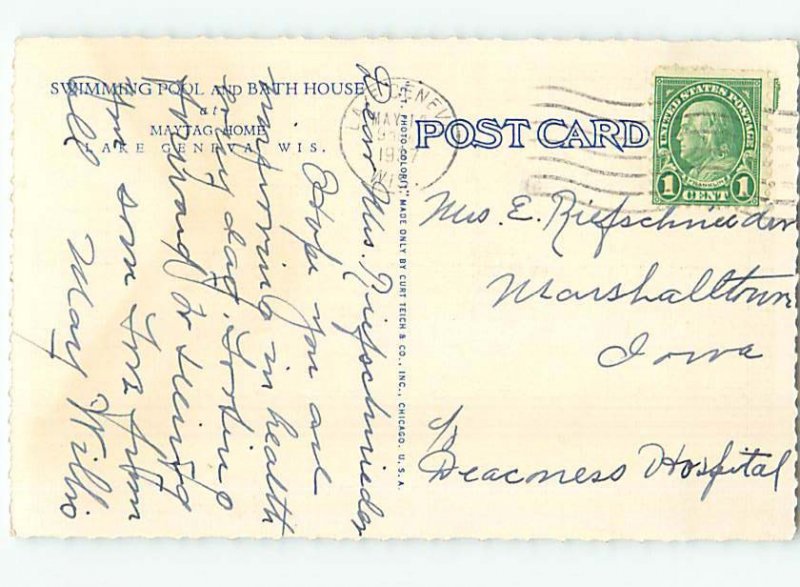 SWIMMING POOL AND BATH HOUSE
at
MAYTAG HOME
LAKE GENEVA, WIS.
Dear Mrs. Riefschnieder
Hope you are
improving in health
every day. Looking
forward to seeing
you soon. Love from
all Mary Willis
"C.T. PHOTO-COLORIT" MADE ONLY BY CURT TEICH & CO., INC., CHICAGO, U.S.A.
LAKE GENEVA
MAY
WIS.
POST CARD
UNITED STATES POSTAGE
FRANKLIN
1 CENT 1
Mrs. E. Riefschnieder
Marshalltown
Iowa
c/o
Deaconess Hospital